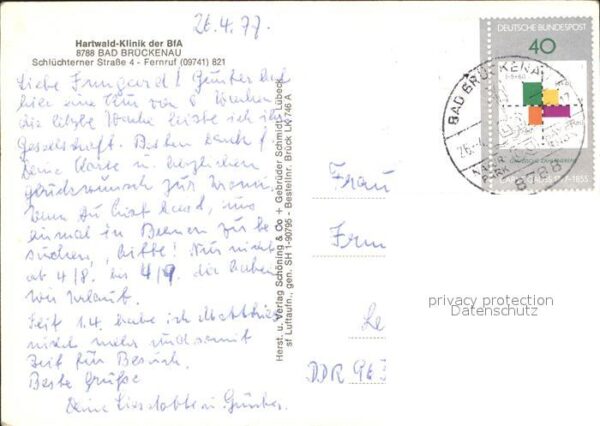 26.4.77.
Hartwald-Klinik der BfA
8788 BAD BRÜCKENAU
Schlüchterner Straße 4 - Fernruf (09741) 821
Liebe Irmgard! Günter darf
hier eine Kur von 6 Wochen
die letzte Woche leiste ich ihm
Gesellschaft. Besten Dank f.
Deine Karte u. herzlichen
Glückwunsch zur
Wenn Du Lust hast, uns
einmal in Bremen zu be
suchen, bitte! Nur nicht
ab 4/8. bis 4/9. da haben
wir Urlaub.
Seit 1.4. habe ich
nicht mehr und somit
Zeit für Besuch.
Beste Grüße
Deine Liselotte u. Günter.
Herst. u. Verlag Schöning & Co + Gebrüder Schmidt, Lübeck
sf Luftaufn., gen. SH 1-90795 - Bestellnr. Brück LK 746 A
DEUTSCHE BUNDESPOST
40
BAD BRÜCKENAU
8788
Frau
Irm
Le
DDR 963
privacy protection
Datenschutz